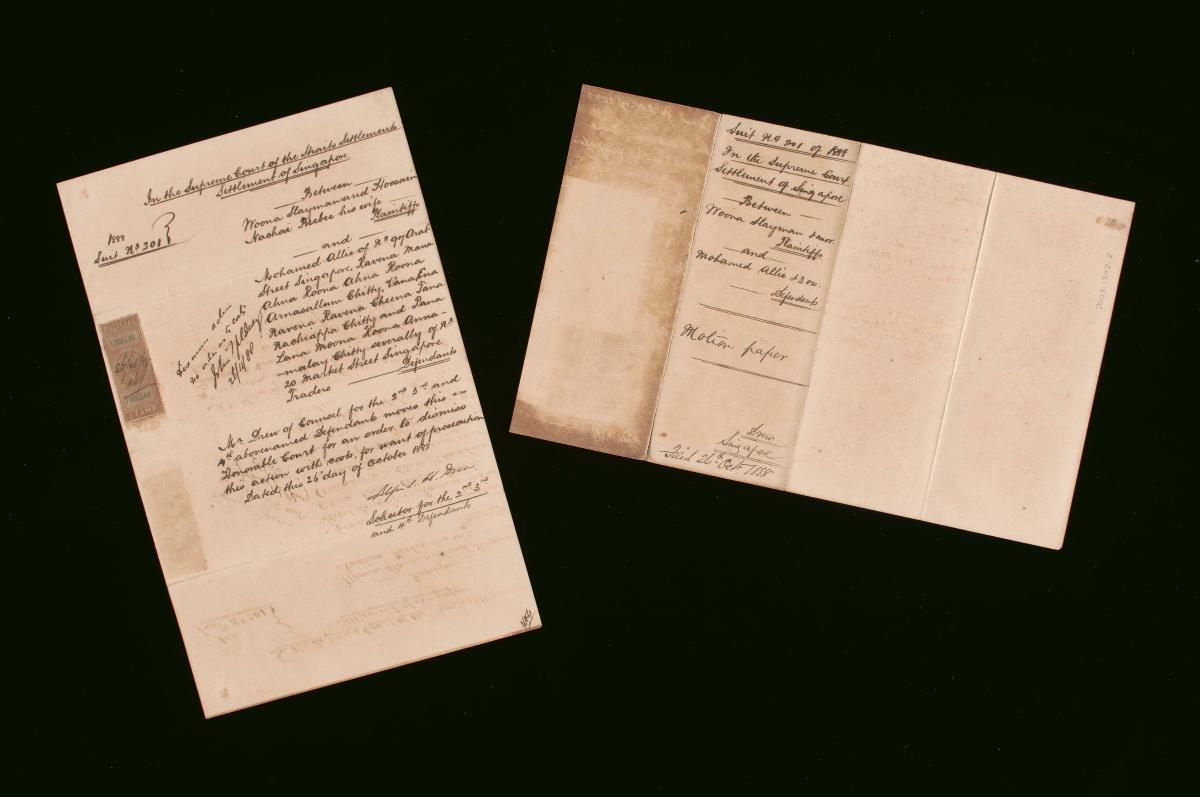 In the Supreme Court of the Straits Settlements
Settlement of Singapore
1888
Suit No 201
Between
Woona Slayman and Hoosain
Nachai Beebee his wife
Plaintiffs
and
Mohamed Allie of No 97 Arab
Street Singapore, Ravena Mana
Ahna Roona Ahna Roona
Arnasallum Chitty, Vana Ena
Ravena Ravena Cheena Tana
Rachiappa Chitty and Pana
Lana Moona Roona Anna-
-malay Chitty severally of No
20 Market Street Singapore
Traders
Defendants
Dismiss action
no order as to costs
26/10/88
1 DOLLAR
26/10/88
1 DOLLAR
Mr Drew of Counsel for the 2nd 3rd and
4th abovenamed Defendants moves this
Honorable Court for an order to dismiss
this action with costs, for want of prosecution
Dated this 26 day of October 1888
Solicitor for the 2nd 3rd
and 4th Defendants
Suit No 201 of 1888
In the Supreme Court
Settlement of Singapore
Between
Woona Slayman & anor.
Plaintiffs
and
Mohamed Allie & 3 ors.
Defendants
Motion paper
Drew
Singapore
Filed 26th Oct 1888